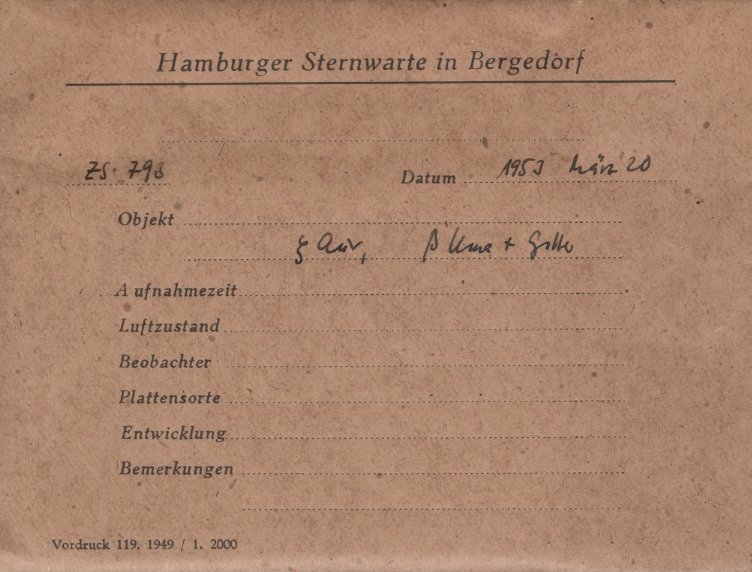 Hamburger Sternwarte in Bergedorf
ZS. 793
Datum 1953 März 20
Objekt
ξ Aur, β UMa + Gitter
Aufnahmezeit
Luftzustand
Beobachter
Plattensorte
Entwicklung
Bemerkungen
Vordruck 119. 1949 / 1. 2000